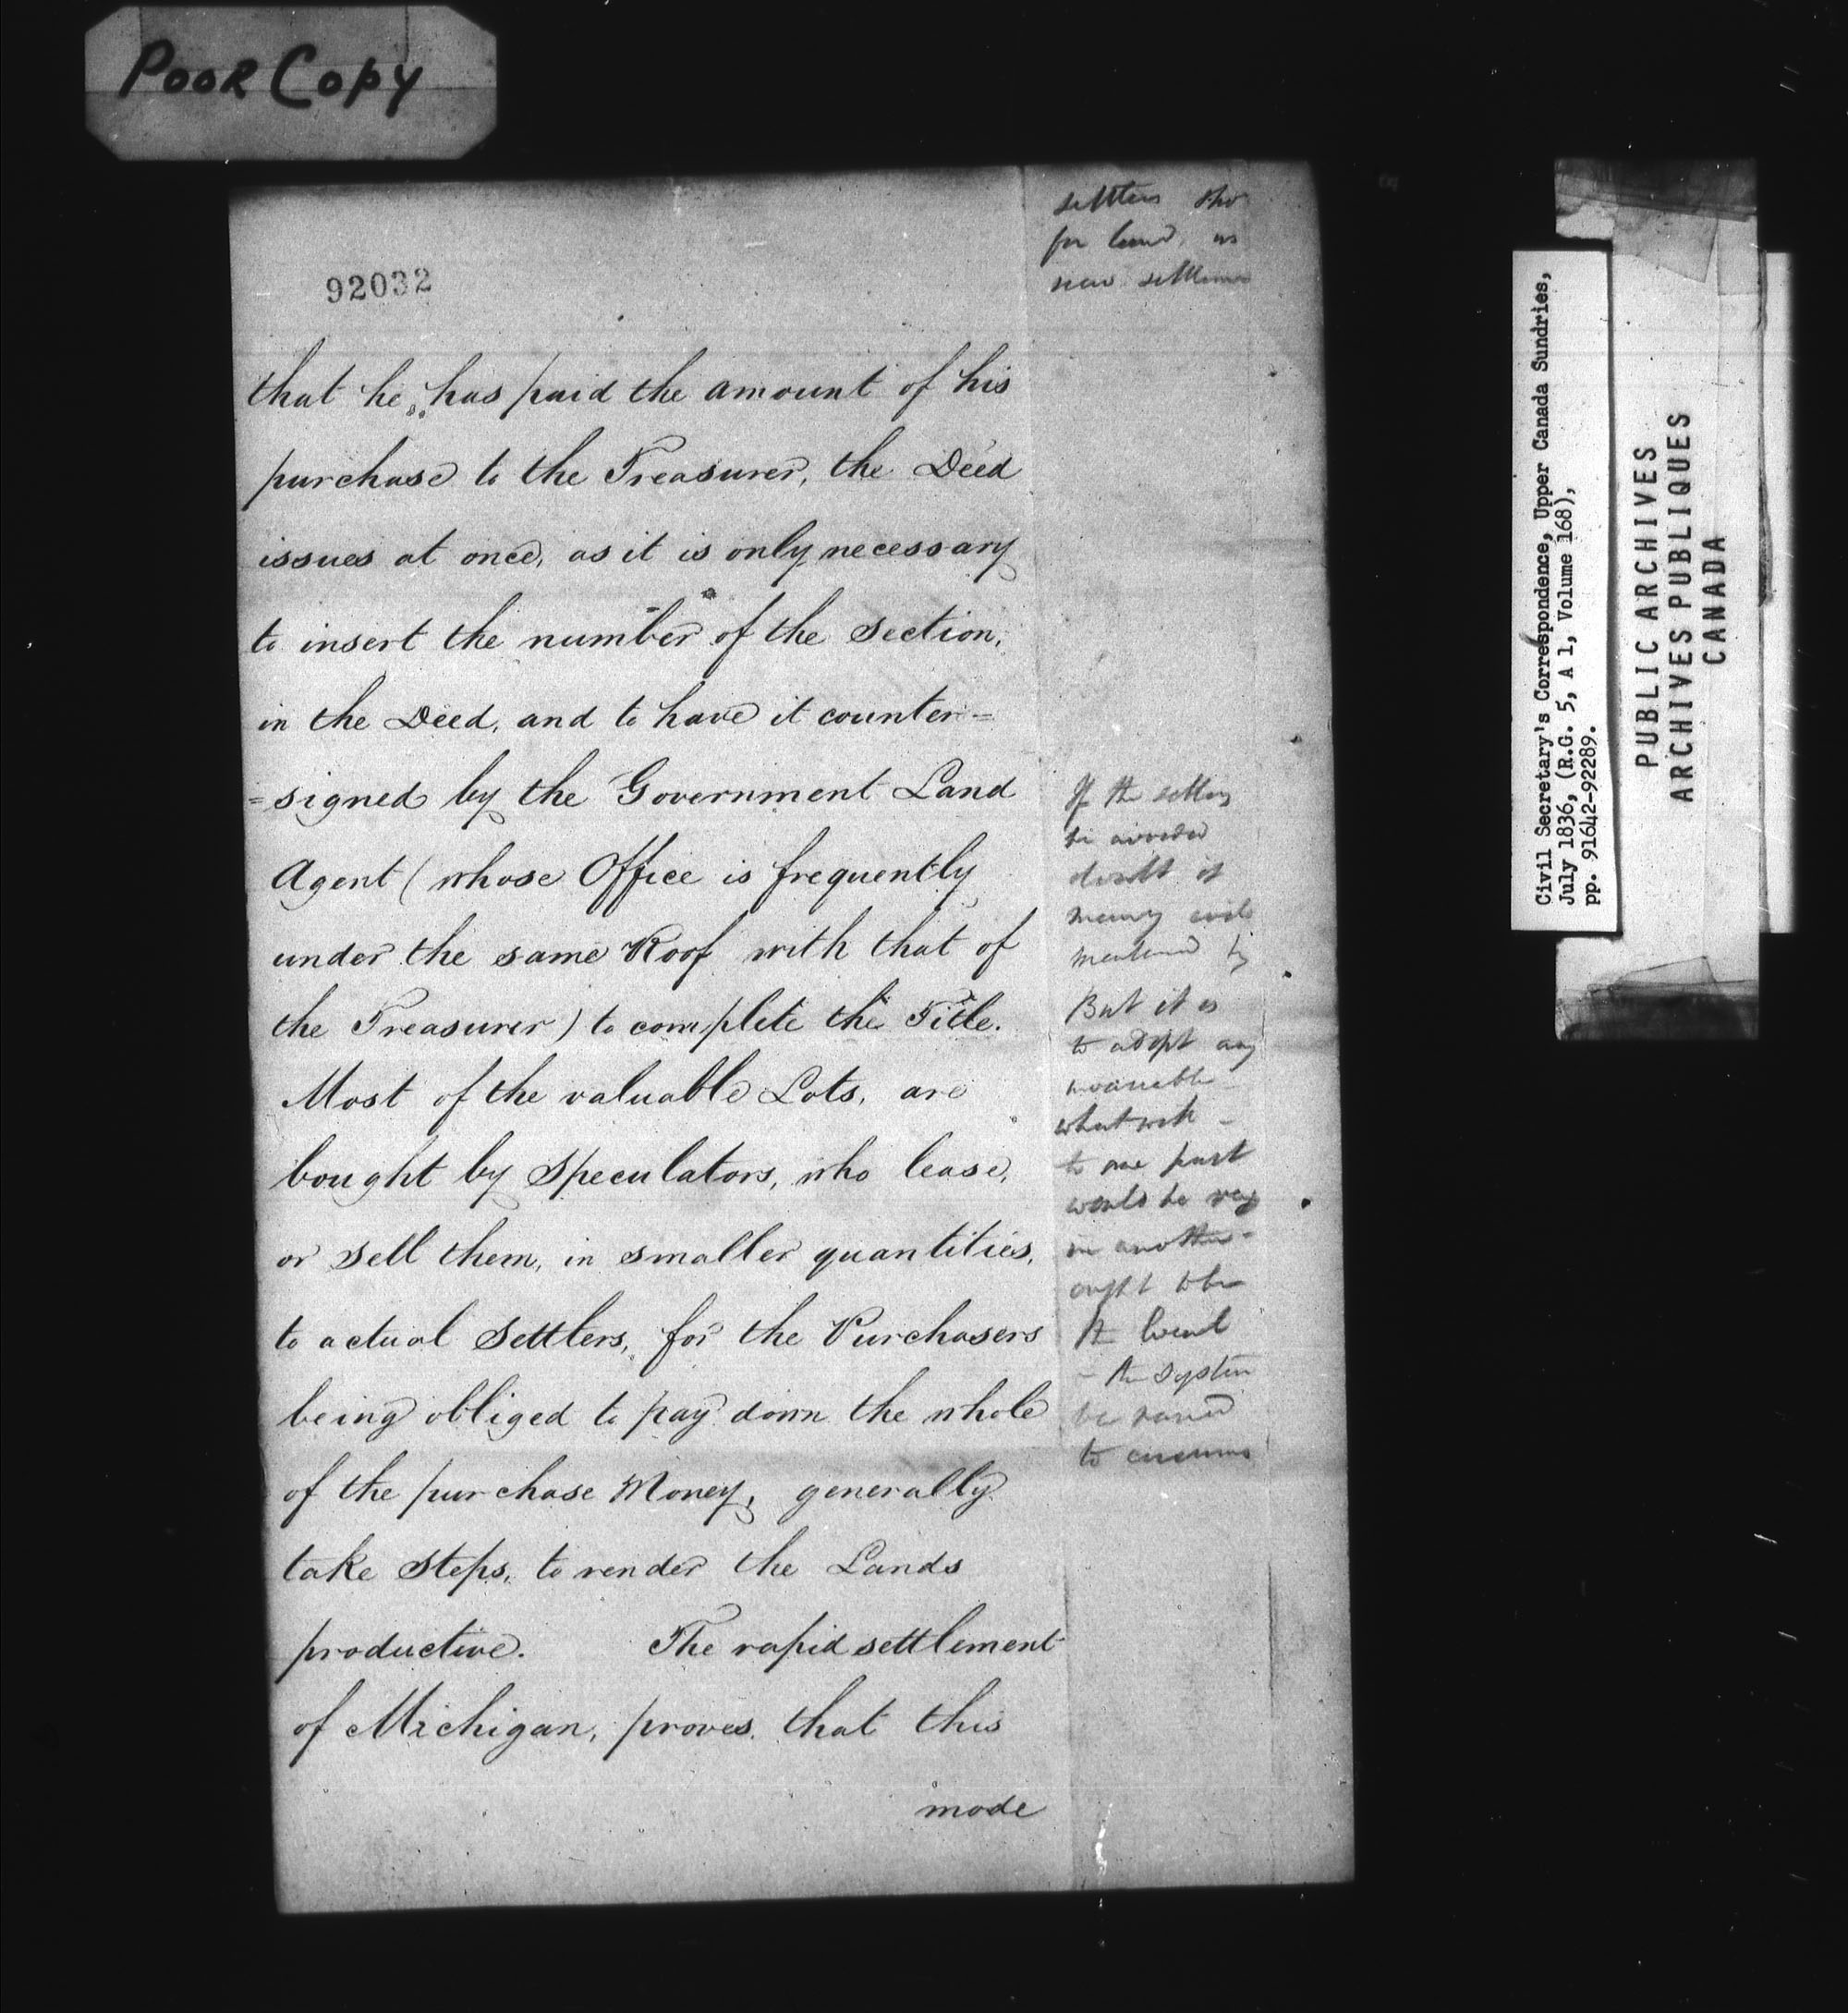 Poor Copy
92032
that he has paid the amount of his
purchase to the Treasurer, the Deed
issues at once, as it is only necessary
to insert the number of the Section,
in the Deed, and to have it counter=
=signed by the Government Land
Agent (whose Office is frequently
under the same Roof with that of
the Treasurer) to complete the Title.
Most of the valuable Lots, are
bought by Speculators, who lease,
or sell them, in smaller quantities,
to actual Settlers, for the Purchasers
being obliged to pay down the whole
of the purchase Money, generally
take Steps, to render the Lands
productive. The rapid settlement
of Michigan, proves, that this
mode
settlers
for land, as
new
If the
be avoided
many evils
by
But it is
to adopt any
what
to one part
would be very
in another
ought to be
the system
be varied
to
Civil Secretary's Correspondence, Upper Canada Sundries,
July 1836, (R.G. 5, A 1, Volume 168),
pp. 91642-92289.
PUBLIC ARCHIVES
ARCHIVES PUBLIQUES
CANADA